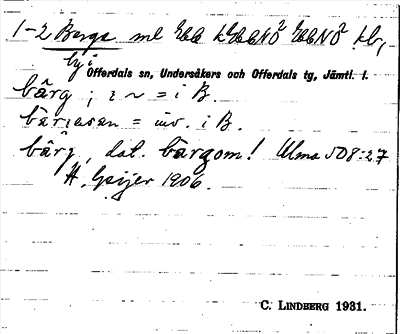 1-2 Berge ml
by i
Offerdals sn, Undersåkers och Offerdals tg, Jämtl. l.
bârg ; i ~ = i B.
= inv. i B.
bârg, dat. bàrgom! Ulma 508:27
H. Geijer 1906.
C. LINDBERG 1931.